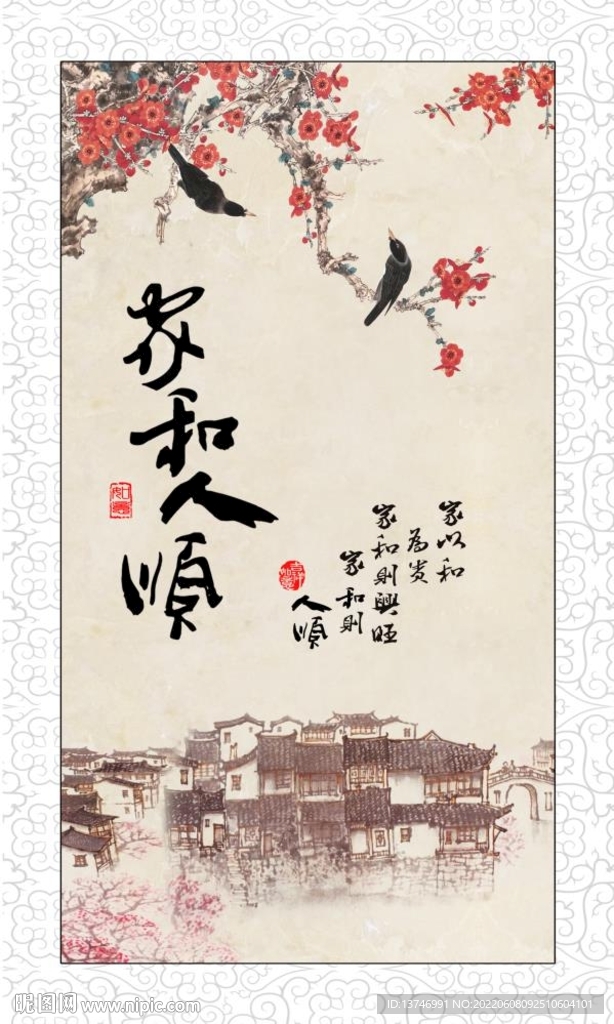 家和人順
家以和
為貴
家和則興旺
家和則
人順
昵图网 www.nipic.com
ID:13746991 NO:20220608092510604101